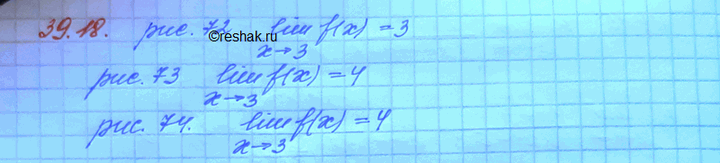 39.18. рис. 72 lim f(x) = 3
x→3
©reshak.ru
рис. 73 lim f(x) = 4
x→3
рис. 74. lim f(x) = 4
x→3